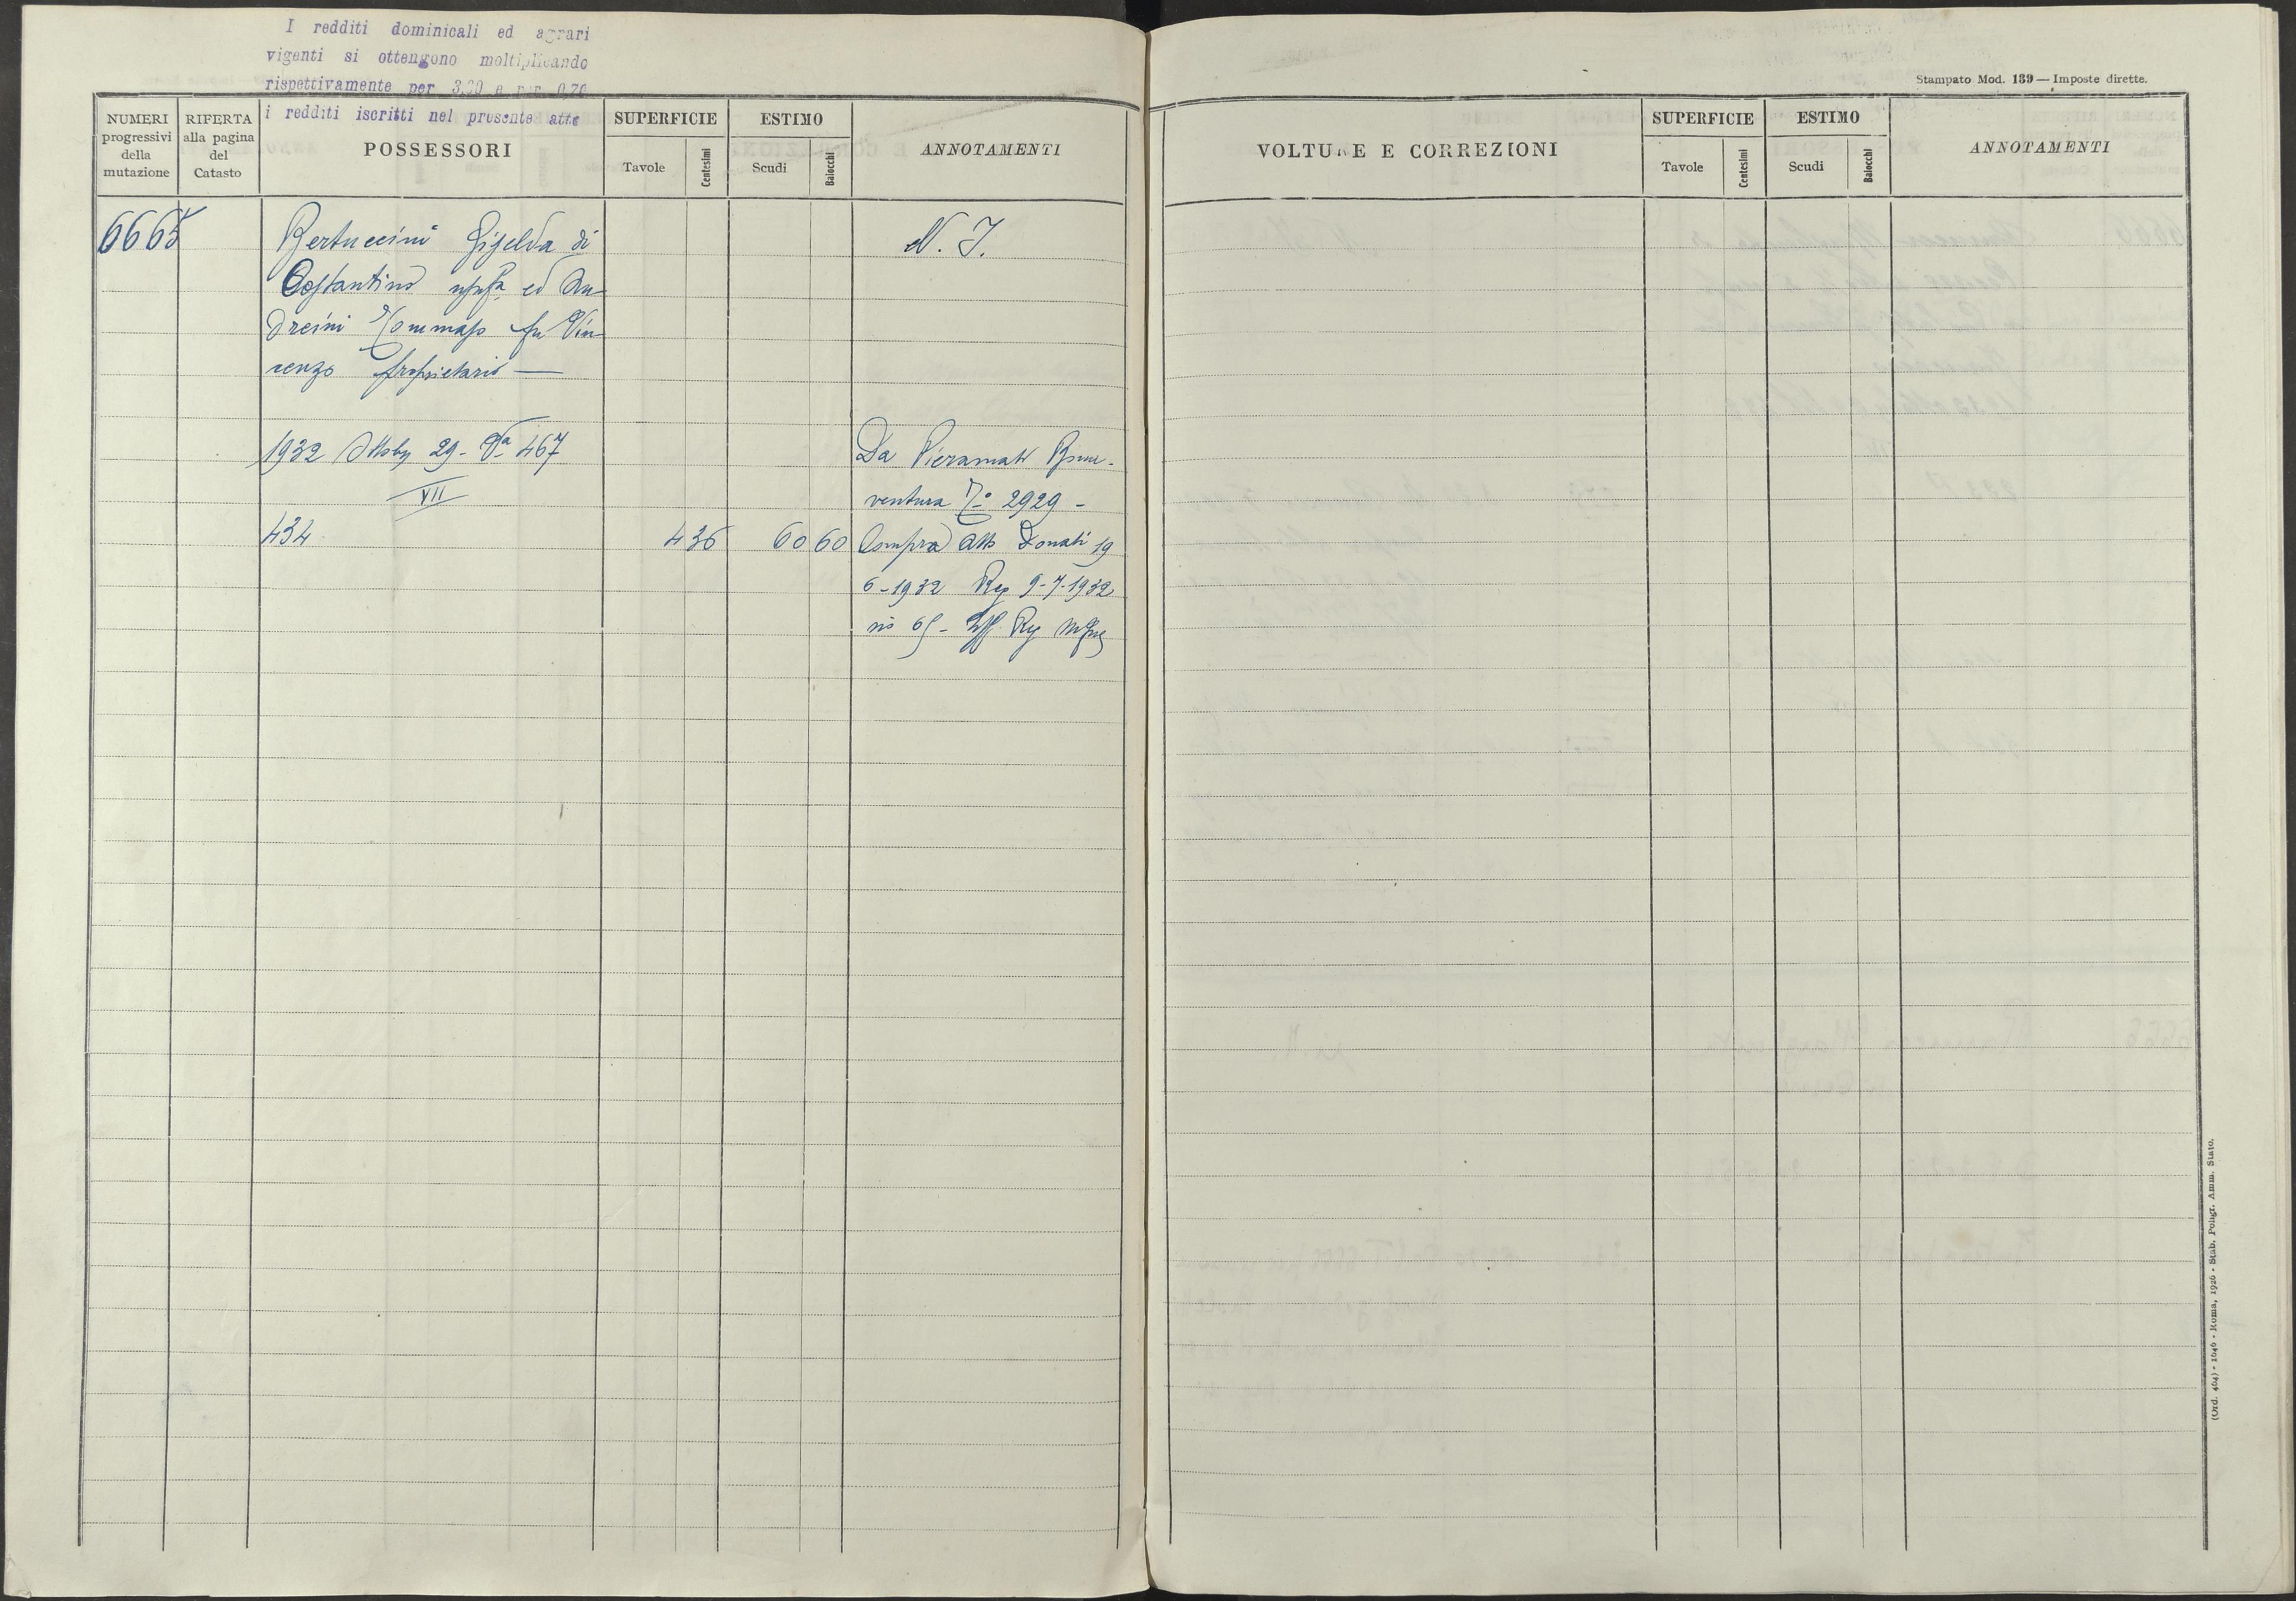 I redditi dominicali ed agrari
vigenti si ottengono moltiplicando
rispettivamente per 3,00 e per 0,70
i redditi iscritti nel presente atto
Stampato Mod. 189 — Imposte dirette.
NUMERI progressivi della mutazione
RIFERTA alla pagina del Catasto
POSSESSORI
SUPERFICIE
Tavole
Centesimi
ESTIMO
Scudi
Baiocchi
ANNOTAMENTI
VOLTURE E CORREZIONI
SUPERFICIE
Tavole
Centesimi
ESTIMO
Scudi
Baiocchi
ANNOTAMENTI
6665
Bertuccini Giselda di
Costantino usufa ed An-
dreini Tommaso fu Vin-
cenzo proprietario —
N. I.
1932 Ottobre 29 - Va 467
VII
434
4 36
60 60
Da Pieramati Bona-
ventura To 2929 -
Compra Atto Donati 19
6-1932 Reg 9-7-1932
no 65 - Uff. Reg
(Ord. 404) - 1046 - Roma, 1926 - Stab. Poligr. Amm. Stato.